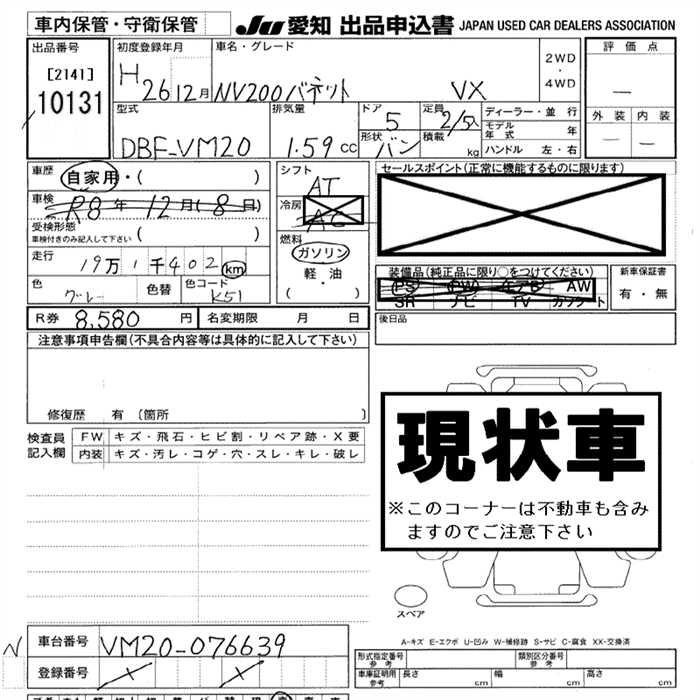 車内保管・守衛保管 JU 愛知 出品申込書 JAPAN USED CAR DEALERS ASSOCIATION
出品番号 初度登録年月 車名・グレード 評価点
[2141] H 26 12月 NV200バネット VX 2WD・4WD —
10131 型式 排気量 ドア 5 定員 2/5人 ディーラー・並行 外装 内装
DBF-VM20 1.59 CC 形状 バン 積載 kg モデル年式 年 — —
ハンドル 左・右
車歴 自家用・( ) シフト AT セールスポイント(正常に機能するものに限ります)
車検 R8年 12月(8日) 冷房 AC
受検形態 車検付きのみ記入して下さい ( ) 燃料 ガソリン
走行 19万1千402km 軽・油 装備品(純正品に限り○をつけてください) 新車保証書
色 グレー 色替 色コード K51 ( ) PS PW エアB AW 有・無
SR ナビ TV カセット
R券 8,580 円 名変期限 月 日 後日品
注意事項申告欄(不具合内容等は具体的に記入して下さい)
修復歴 有 〔箇所 〕
検査員 FW キズ・飛石・ヒビ割・リペア跡・X要
記入欄 内装 キズ・汚レ・コゲ・穴・スレ・キレ・破レ
現状車
※このコーナーは不動車も含み
ますのでご注意下さい
スペア
A-キズ E-エクボ U-凹み W-補修跡 S-サビ C-腐食 XX-交換済
N 車台番号 VM20-076639
登録番号
形式指定番号 参考 類別区分番号 参考
車庫証明用 参考 長さ cm 幅 cm 高さ cm